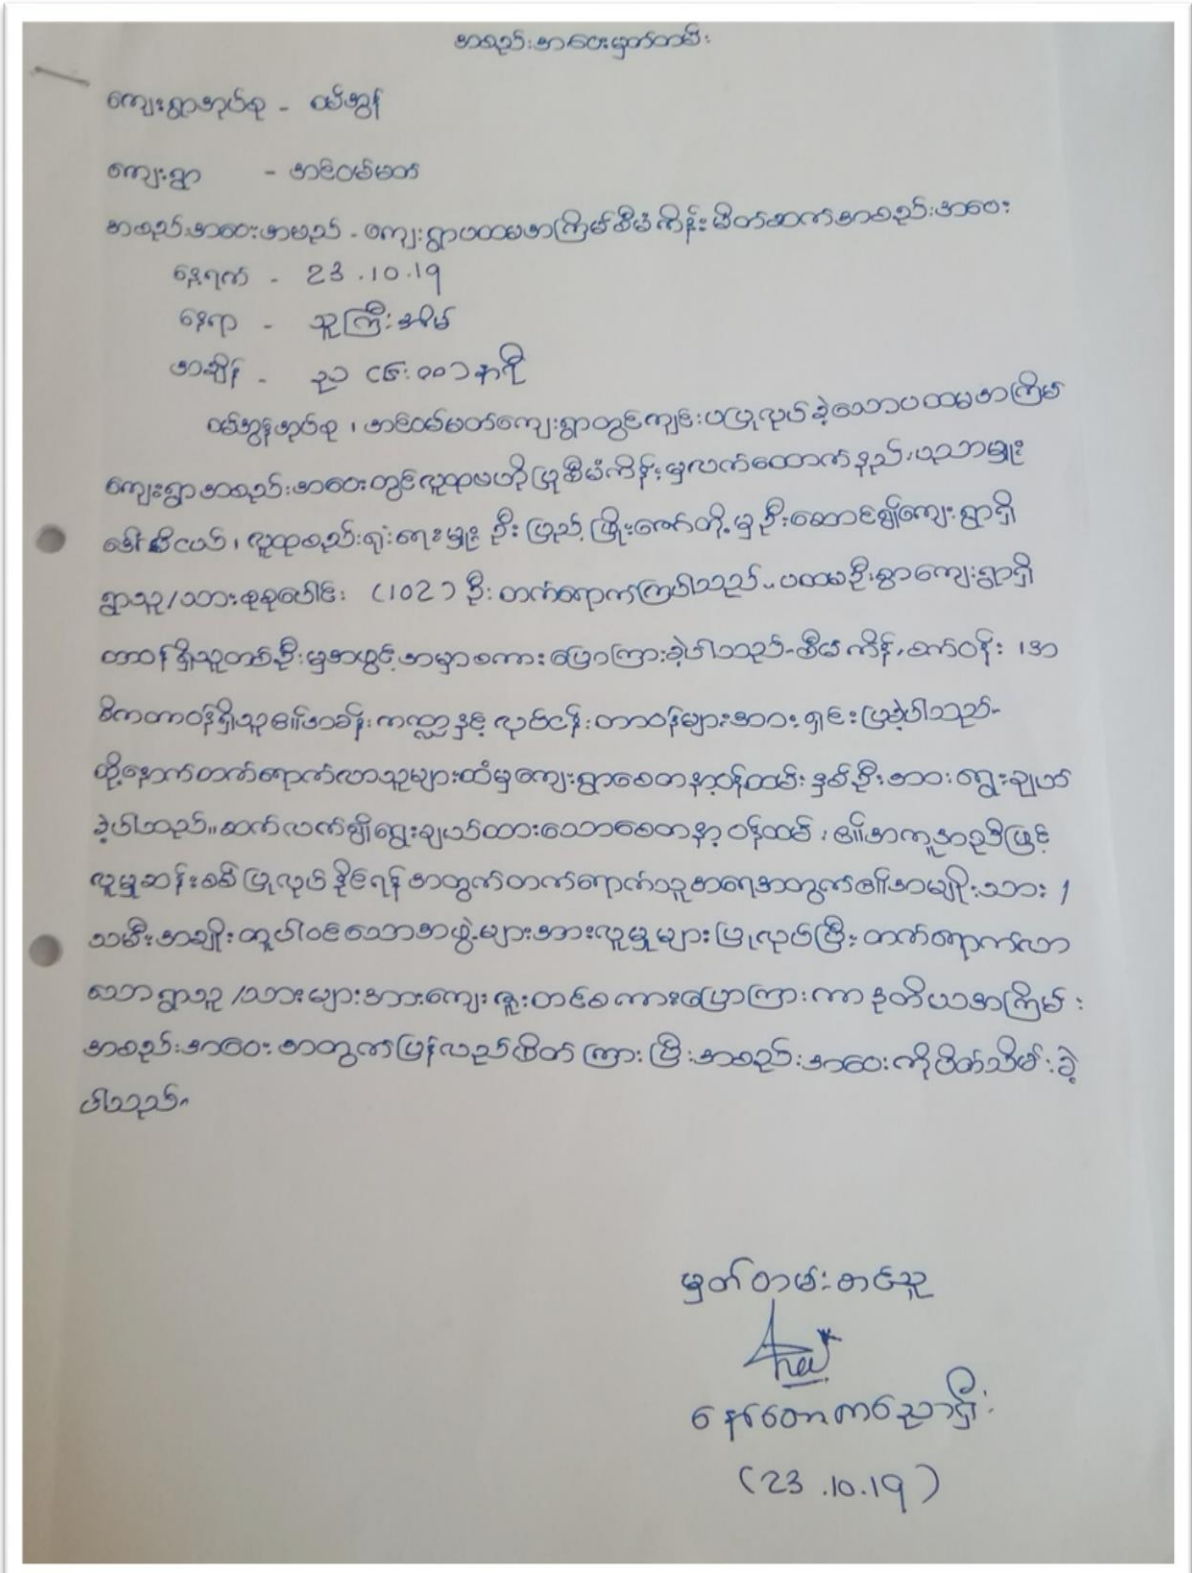 အစည်းအဝေးမှတ်တမ်း
ကျေးရွာအုပ်စု - ထမ်အွန်
ကျေးရွာ - အင်ဝမ်မတ်
အစည်းအဝေးအမည် - ကျေးရွာပထမအကြိမ်စီမံကိန်းမိတ်ဆက်အစည်းအဝေး
နေ့ရက် - 23.10.19
နေရာ - သူကြီးအိမ်
အချိန် - ည (၆:၀၀) နာရီ
အုပ်စု၊ အင်ဝမ်မတ်ကျေးရွာတွင်ကျင်းပပြုလုပ်ခဲ့သောပထမအကြိမ်
ကျေးရွာအစည်းအဝေးတွင်လူထုဗဟိုပြုစီမံကိန်းမှလက်ထောက်နည်းပညာမှူး
ဒေါ် လူထုစည်းရုံးရေးမှူး ဦးပြည့်ဖြိုးဇော်တို့မှဦးဆောင်၍ကျေးရွာရှိ
ရွာသူ/သားစုစုပေါင်း (102) ဦးတက်ရောက်ကြပါသည်။ ပထမဦးစွာကျေးရွာရှိ
တာဝန်ရှိသူတစ်ဦးမှအဖွင့်အမှာစကားပြောကြားခဲ့ပါသည်။ စီမံကိန်းစက်ဝန်း၊ အ
ဓိကတာဝန်ရှိသူ၏အခန်းကဏ္ဍနှင့်လုပ်ငန်းတာဝန်များအားရှင်းပြခဲ့ပါသည်။
ထို့နောက်တက်ရောက်လာသူများထံမှကျေးရွာစေတနာ့ဝန်ထမ်းနှစ်ဦးအားရွေးချယ်
ခဲ့ပါသည်။ ဆက်လက်၍ရွေးချယ်ထားသောစေတနာ့ဝန်ထမ်း၏အကူအညီဖြင့်
လူမှုဆန်းစစ်ပြုလုပ်နိုင်ရန်အတွက်တက်ရောက်သူအရေအတွက်၏အမျိုးသား/
သမီးအချိုးတူပါဝင်သောအဖွဲ့များအားလူမှုများပြုလုပ်ပြီးတက်ရောက်လာ
သောရွာသူ/သားများအားကျေးဇူးတင်စကားပြောကြားကာဒုတိယအကြိမ်
အစည်းအဝေးအတွက်ပြန်လည်ဖိတ်ကြားပြီးအစည်းအဝေးကိုပိတ်သိမ်းခဲ့
ပါသည်။
မှတ်တမ်းတင်သူ
(23.10.19)